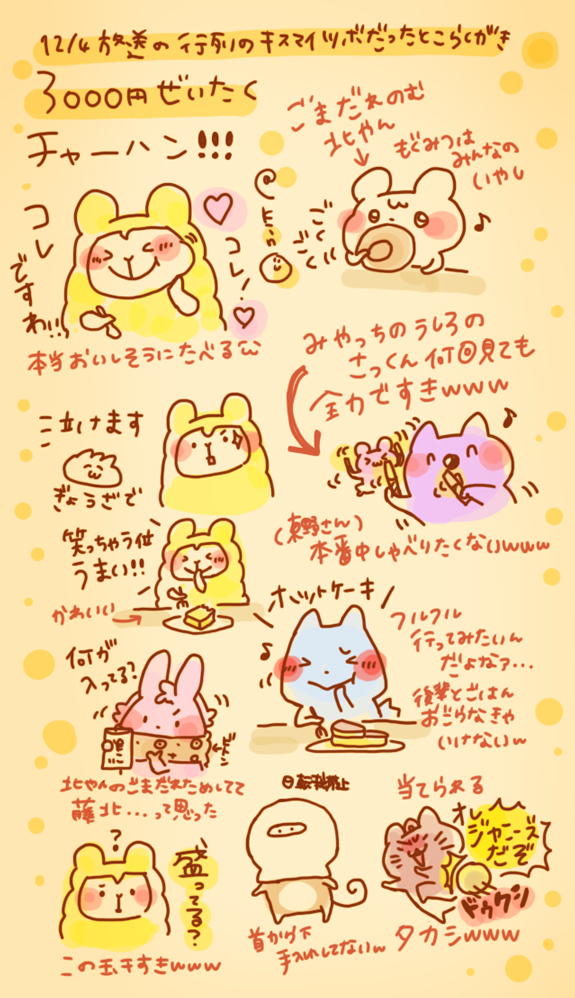 12/4 放送の行列のキスマイツボだったとこらくがき
3000円ぜいたく
チャーハン!!!
ごまだれのむ
北やん
もぐみつは
みんなの
いやし
ごく
ごく
コレ
ですわ!!
コレ!
本当おいしそうにたべる
みやっちのうしろの
さっくん何回見ても
全力ですきwww
泣けます
ぎょうざで
(東野さん)
本番中しゃべりたくないwww
笑っちゃう位
うまい!!
かわいい
ホットケーキ
フルフル
行ってみたいん
だよなァ…
後輩とごはん
おごらなきゃ
いけないw
何が
入ってる?
北やんのごまだれためしてて
藤北…って思った
?
盛ってる?
この玉干すきwww
自転車禁止
首から下
手入れしてないw
当てられる
オレ
ジャニーズ
だぞ
ドゥクシ
タカシwww